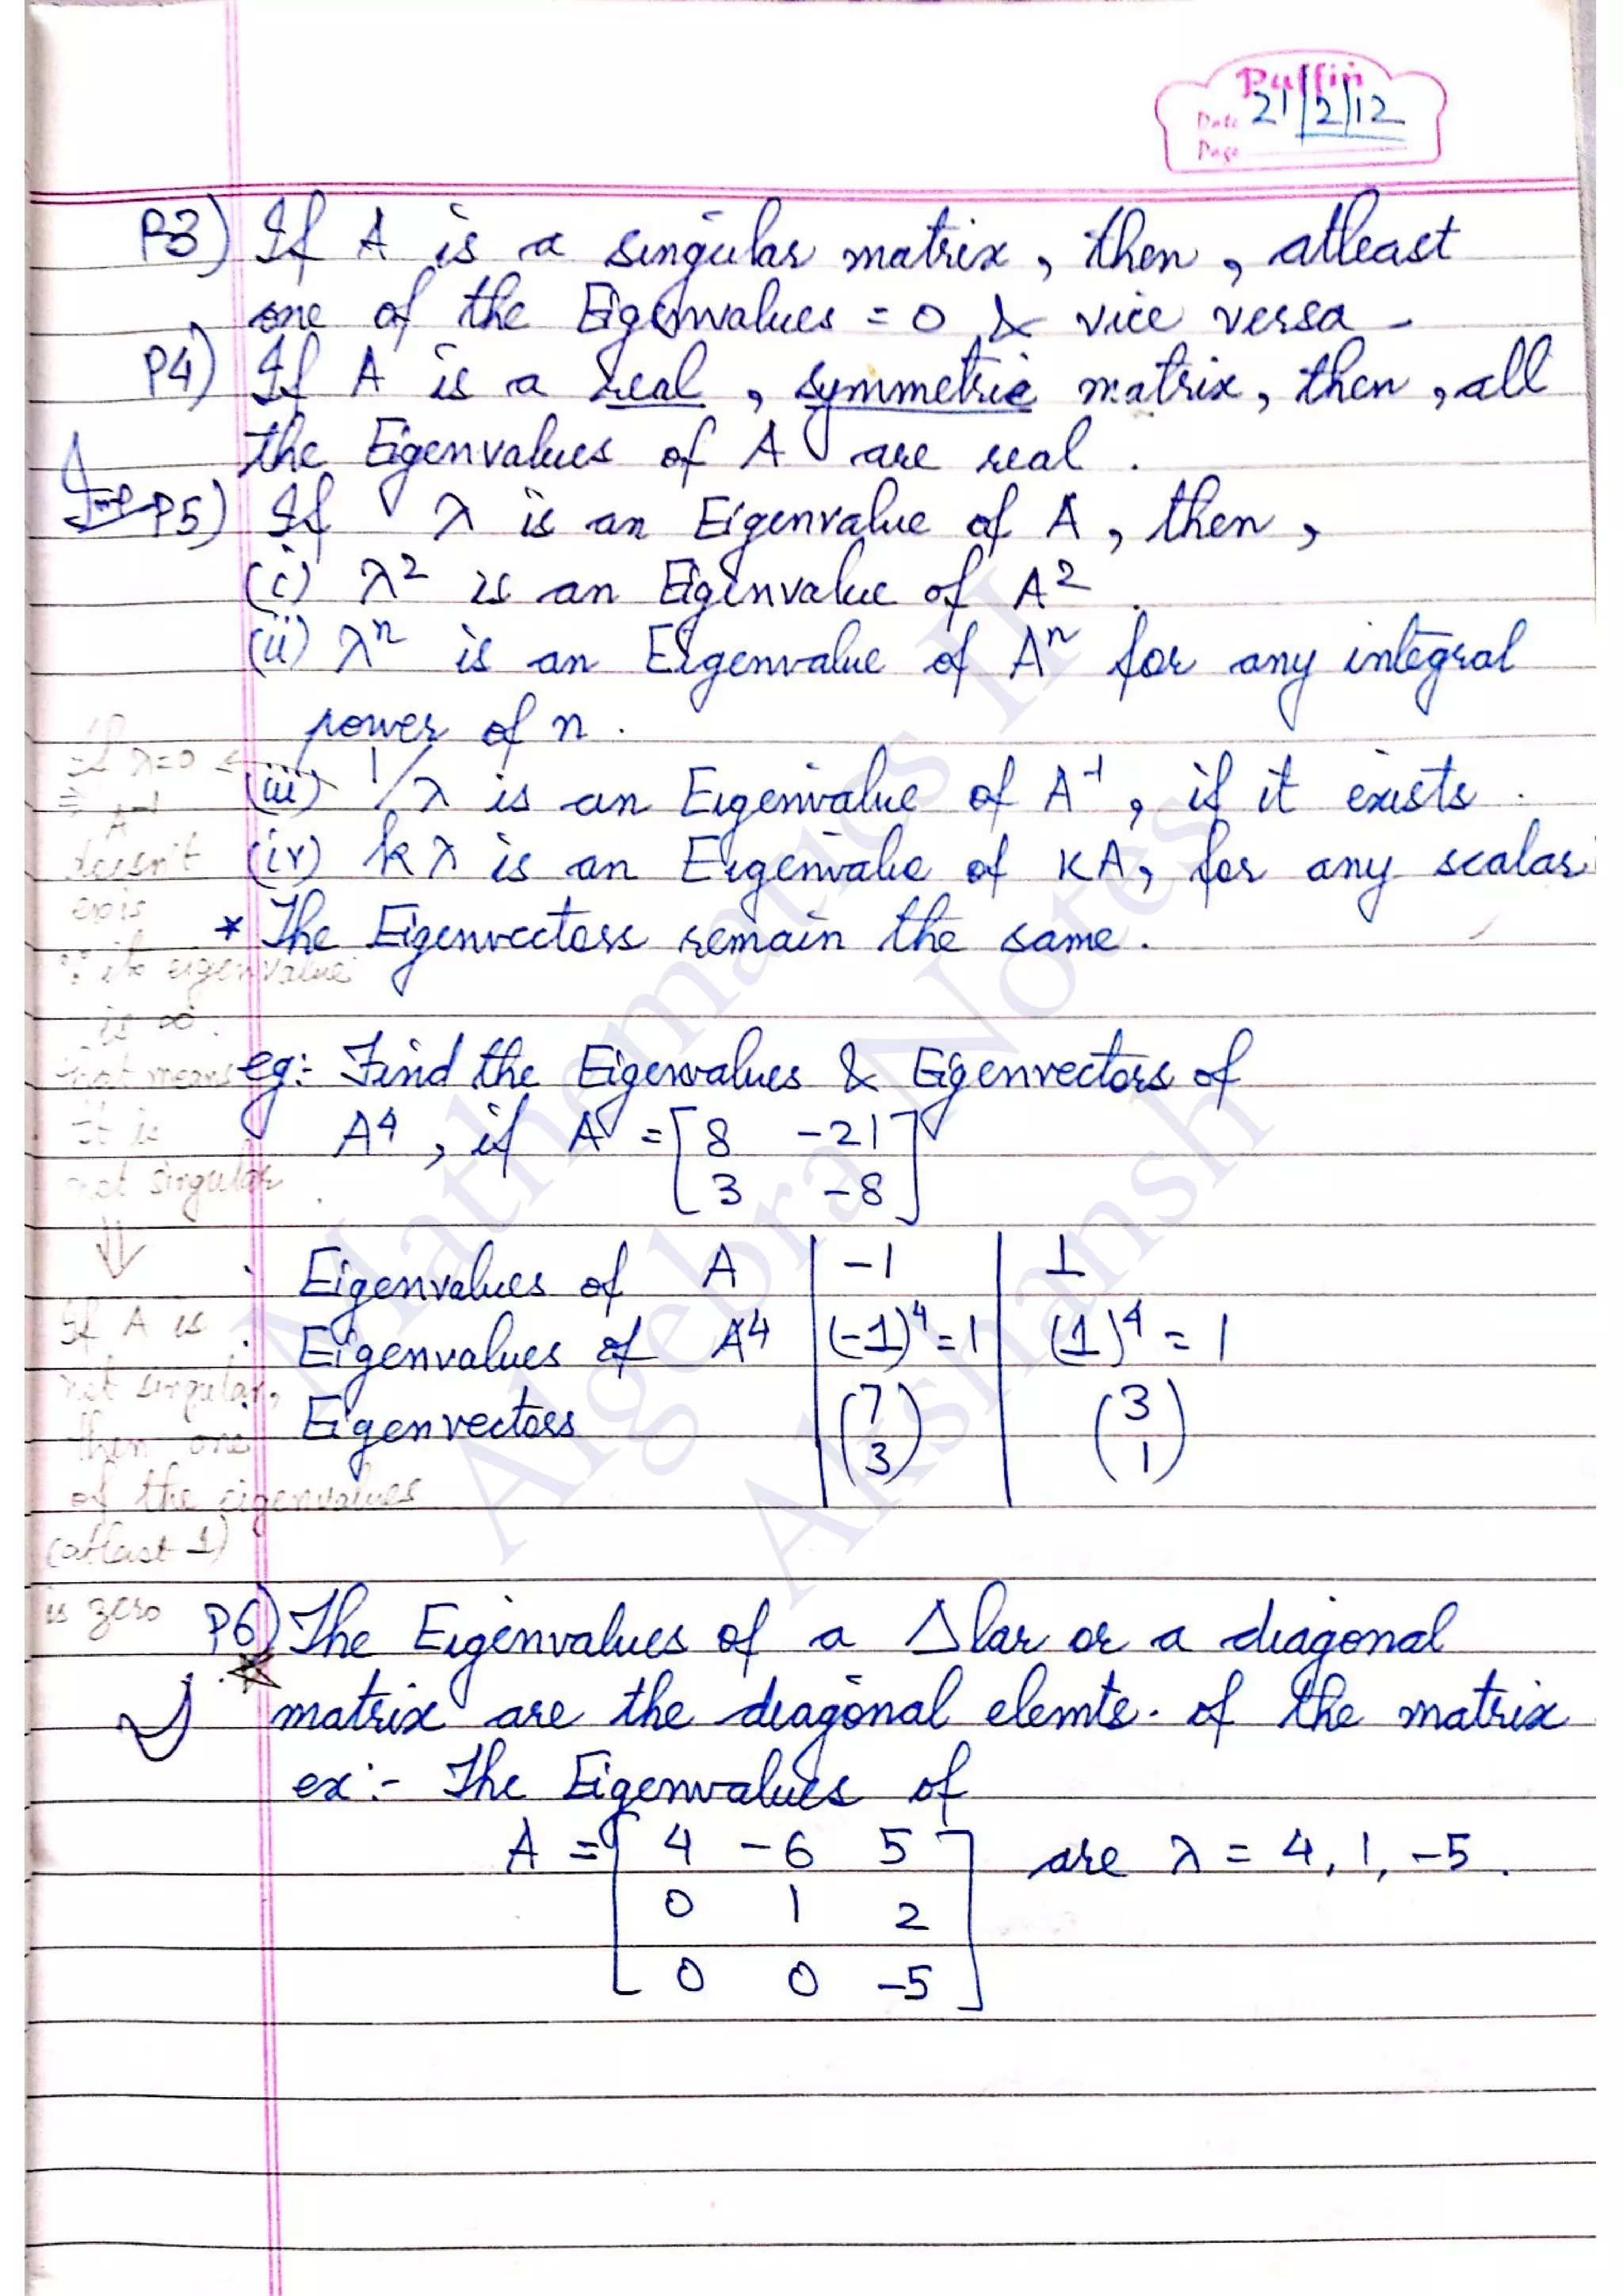 Puffin
Date 21/2/12
Page
P3) If A is a singular matrix, then, atleast
one of the Eigenvalues = 0 & vice versa.
P4) If A is a real, symmetric matrix, then, all
the Eigenvalues of A are real.
Imp P5) If λ is an Eigenvalue of A, then,
(i) λ² is an Eigenvalue of A².
(ii) λⁿ is an Eigenvalue of Aⁿ for any integral
power of n.
(iii) 1/λ is an Eigenvalue of A⁻¹, if it exists.
(iv) kλ is an Eigenvalue of KA, for any scalar
* The Eigenvectors remain the same.
If λ=0 ←
⇒ A⁻¹
doesn't
exis
∵ its eigenvalue
is ∞.
that means
It is
not singular
⇓
If A is
not singular,
then one
of the eigenvalues
(atleast 1)
is zero
eg:- Find the Eigenvalues & Eigenvectors of
A⁴, if A = [8 -21]
[3 -8]
Eigenvalues of A | -1 | 1
Eigenvalues of A⁴ | (-1)⁴=1 | (1)⁴ = 1
Eigenvectors | (7 3) | (3 1)
P6) The Eigenvalues of a Δlar or a diagonal
matrix are the diagonal elemts. of the matrix
ex:- The Eigenvalues of
A = [4 -6 5] are λ = 4, 1, -5.
[0 1 2]
[0 0 -5]
Mathematics II
Algebra Notes
Akshansh